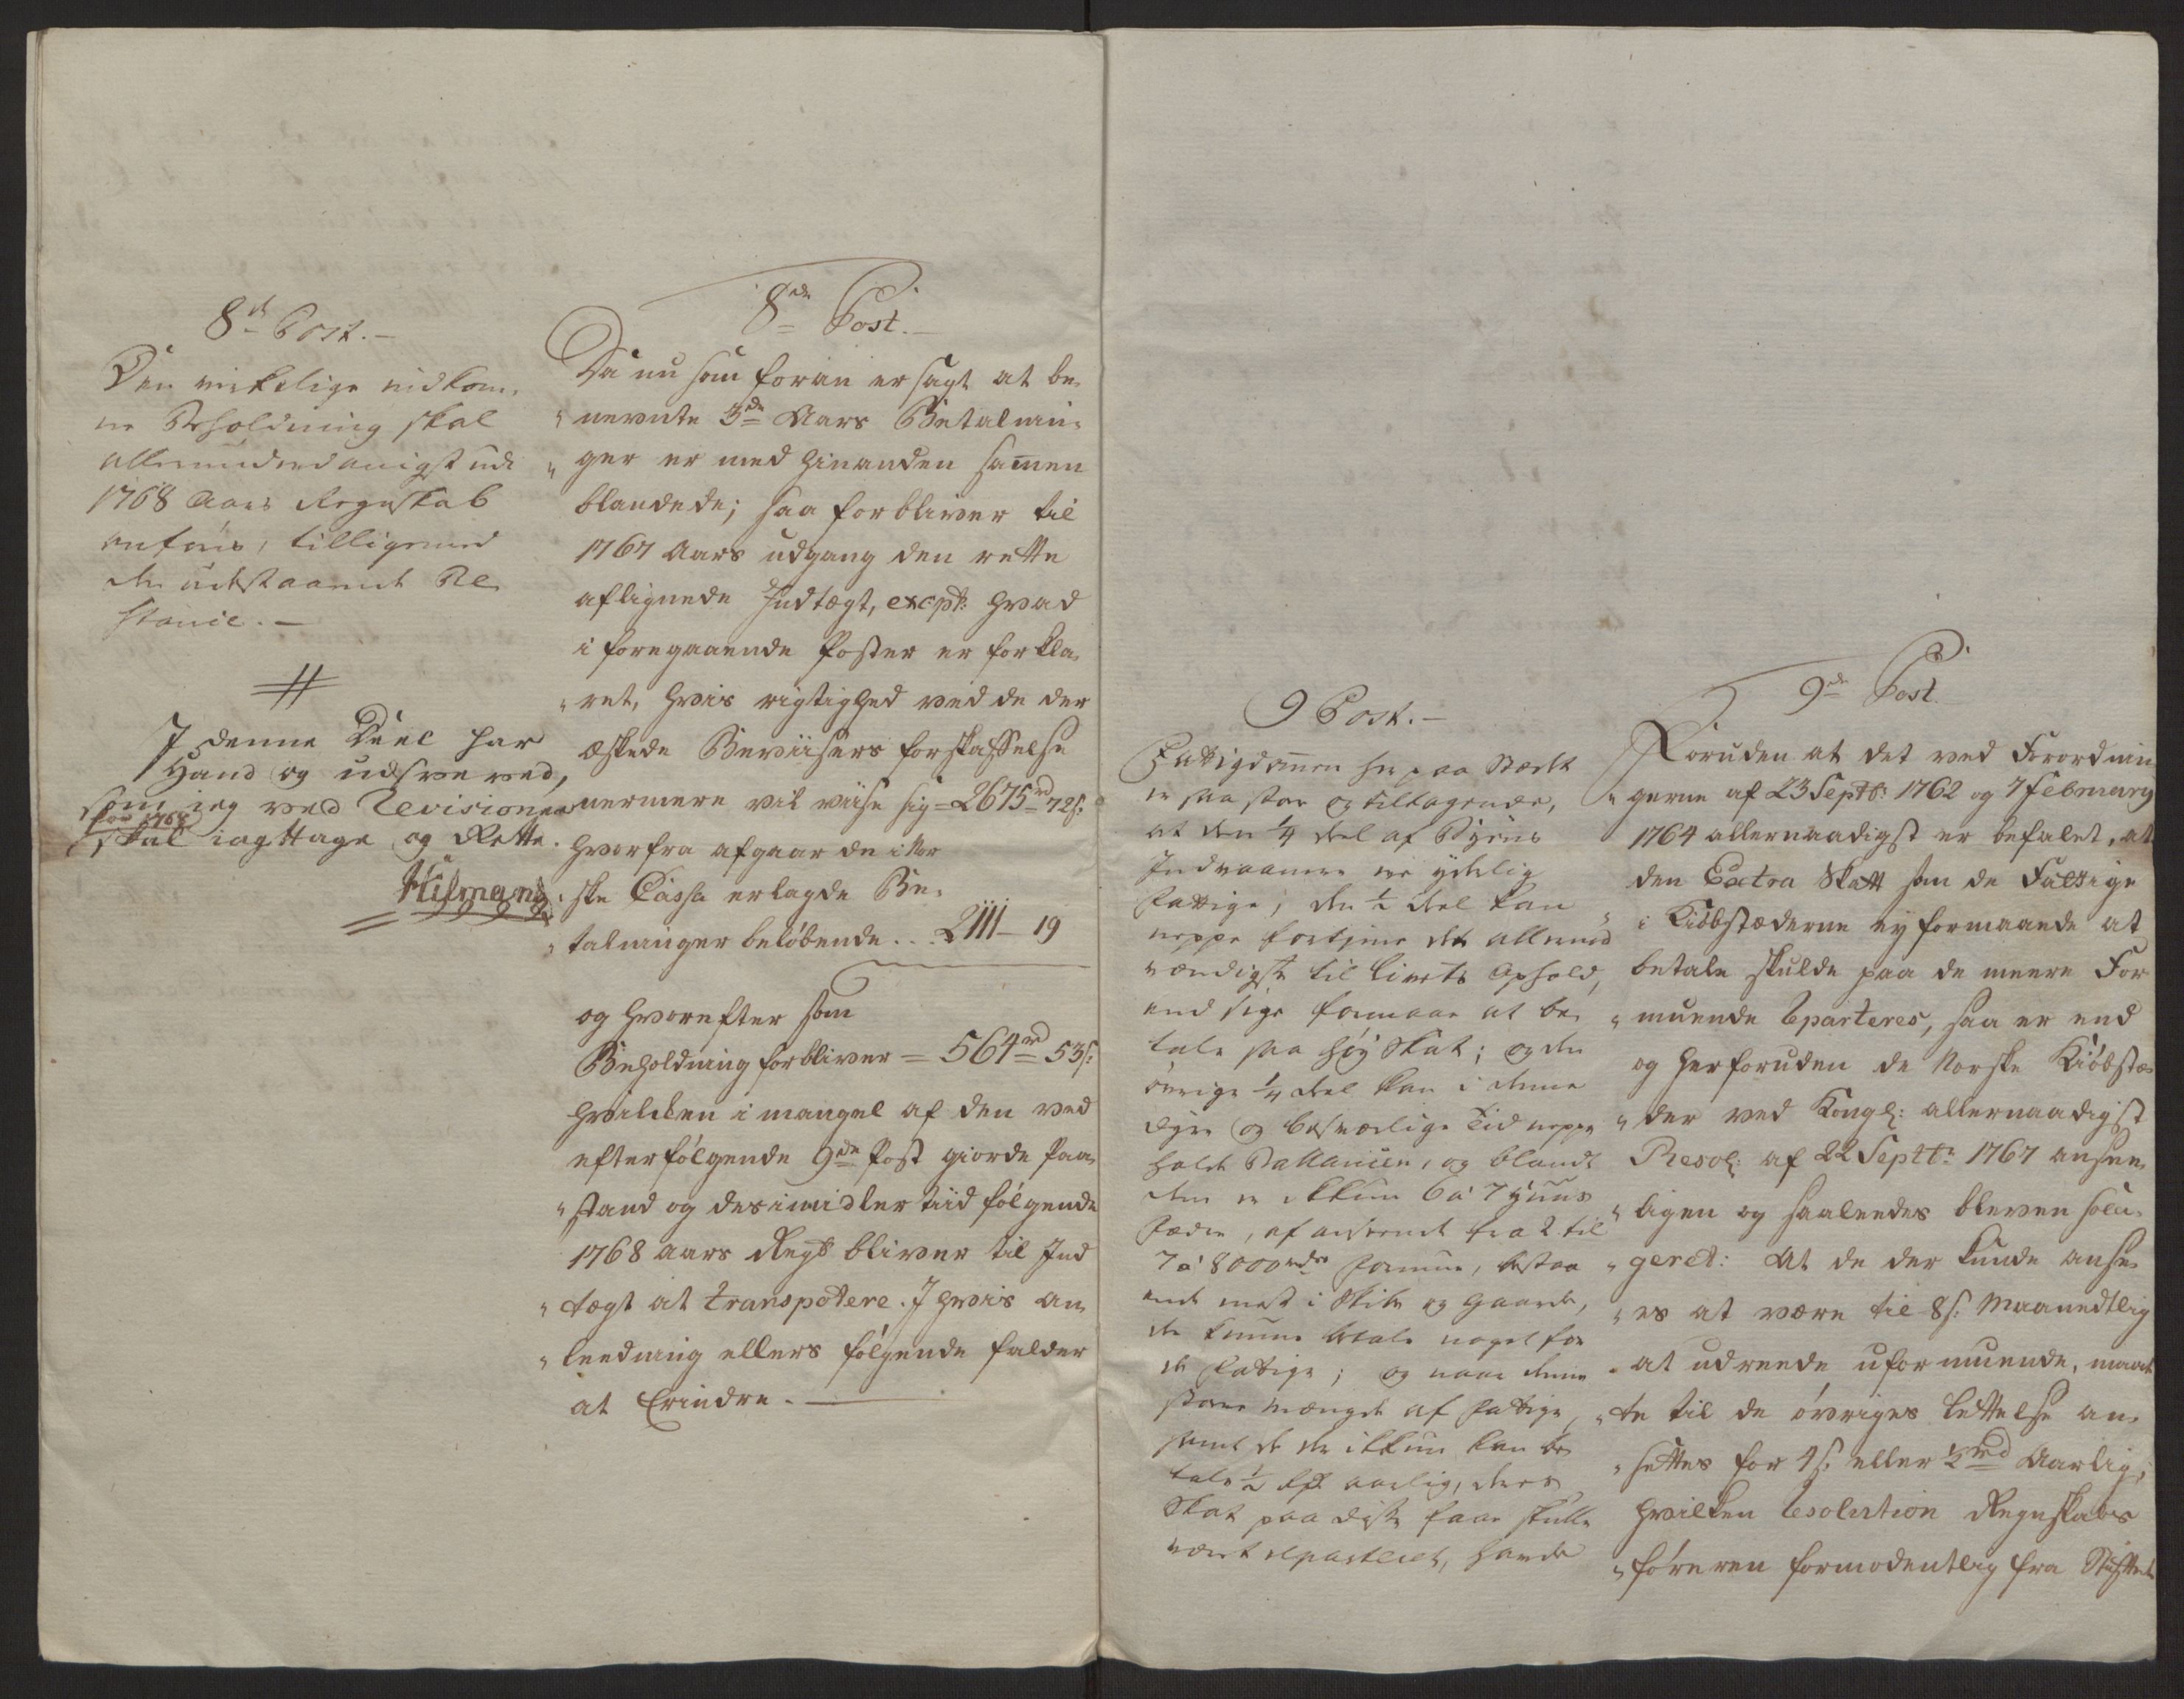 8de Post.-
Den virkelige indkom-
ne Beholdning skal
allerunderdanigst udi
1768 Aars Regnskab
anføris, tilligemed
den udestaaende Re
stance.-
I denne Deel har
Hand og udsvared,
som ieg ved Revisionen
for 1768
skal iagttage og Rette.
Hilmand
8de Post.
Da nu som foran er sagt at be-
nevnte 3de Aars Betalnin-
ger er med hinanden samen
blandede; saa forbliver til
1767 Aars udgang den rette
aflignede Indtægt, except: hvad
i foregaaende Poster er forkla-
ret, hvis rigtighed ved de der
æskede Beviisers forskaffelse
nermere vil viise sig = 2675rd 72s:
hvorfra afgaar de i Nor
ske Cassa erlagde Be-
talninger beløbende .. 2111 - 19
og hvorefter som
Beholdning forbliver = 564rd 53s:
hvilcken i mangel af den ved
efterfølgende 9de Post giorde Paa-
stand og des imidlertiid følgende
1768 aars Regns: bliver til Ind
tægt at transportere. I hvis an-
leedning ellers følgende falder
at Erindre.
9 Post.-
Fattigdommen her paa Stædet
er saa stor og tiltagende,
at den 1/4 deel af Byens
Indvaanere ere ydelig
Fattige; den 1/2 deel kan
neppe fortjene det allernød
vændigste til Livets Ophold,
end sige formaae at be-
tale saa høy Skat; og den
øvrige 1/4 deel kan i denne
dyre og besværlige Tid neppe
holde Ballancen, og blandt
dem er ikkun 6 á 7 Huus
Fædre, af anseende fra 2 til
7 á 8000rdr Formue, bestaa
ende mest i Skibe og Gaarde,
der kunne betale noget for
de Fattige; og naar denne
store mængde af Fattige,
samt de der ikkun kan be-
tale 1/2 rdr aarlig, deres
Skat paa disse faae skulle
været reparteret, havde
9de Post
Foruden at det ved Forordnin
gerne af 23 Septb: 1762 og 7 February
1764 allernaadigst er befalet, at
den Extra Skatt som de Fattige
i Kiøbstæderne ey formaaede at
betale skulde paa de meere For
muende reparteres, saa er end
og herforuden de Norske Kiøbstæ-
der ved Kongl: allernaadigst
Resol: af 22 Septbr: 1767 ansee-
ligen og saaledes bleven soula-
geret: At de der kunde anse-
es at være til 8s: Maanedtlig
at udreede uformuende, maat
te til de øvriges lettelse an-
settes for 4s: eller 1/2rd Aarlig;
hvilken Resolution Regnskabs
føreren formodentlig fra Stiftet